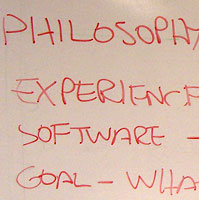 PHILOSOPHY
EXPERIENCE
SOFTWARE -
GOAL - WHA